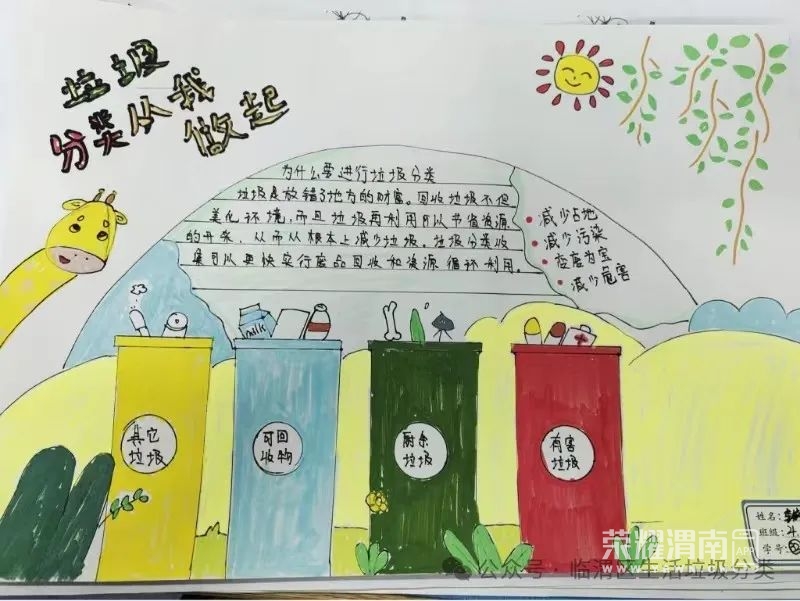 垃圾
分类从我
做起
为什么要进行垃圾分类
垃圾是放错了地方的财富。回收垃圾不但
美化环境,而且垃圾再利用可以节省资源
的开采,从而从根本上减少垃圾。垃圾分类收
集可以更快实行废品回收和资源循环利用。
减少占地
减少污染
变废为宝
减少危害
milk
其它
垃圾
可回
收物
厨余
垃圾
有害
垃圾
姓名:
班级:
学号
荣耀渭南网
APP
公众号·临渭区生活垃圾分类